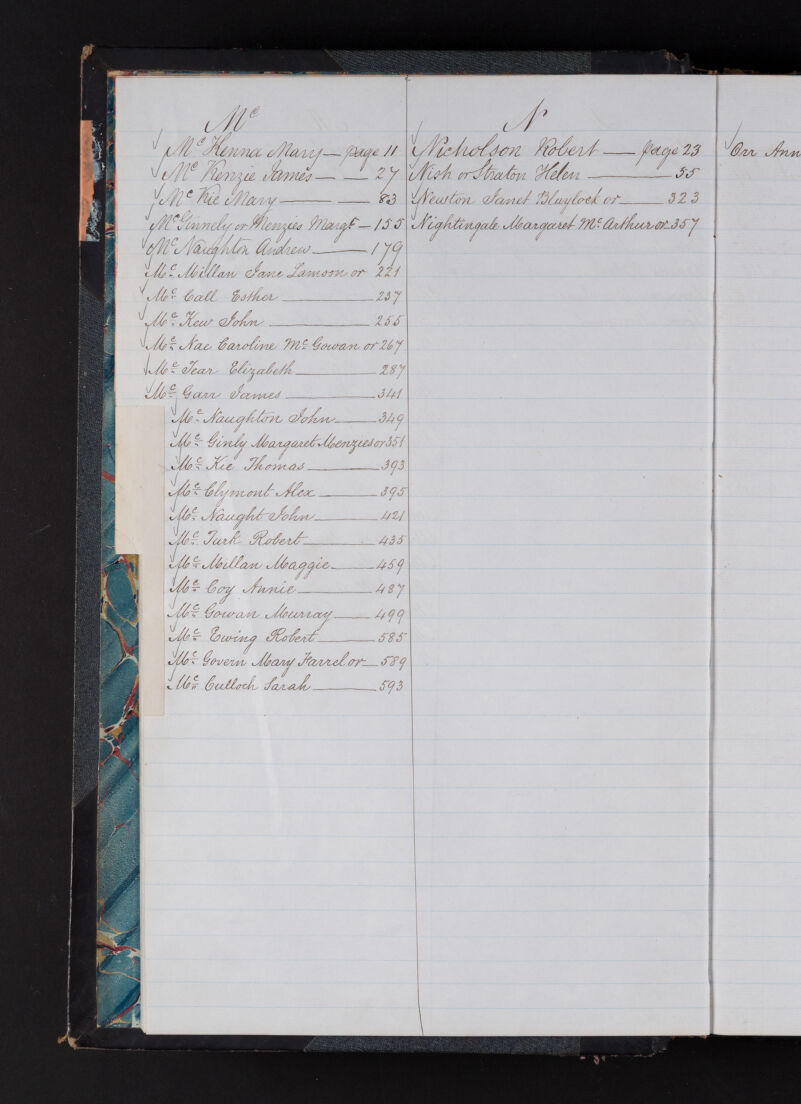 Mc
McKenna Mary — page 11
McKenzie James — — 27
McKie Mary — — 83
McGinnely or Menzies Margt — 155
McNaughton Andrew — 179
Mc Millan Jane Lamson or 221
Mc Call Esther — 237
Mc Kew John — 255
Mc Nae Caroline McGowan or 267
Mc Tear Elizabeth — 287
Mc Garr James — 341
Mc Naughton John — 349
Mc Ginly Margaret Menzies or 351
Mc Kie Thomas — 393
Mc Clymont Alex — 395
Mc Naught John — 421
Mc Turk Robert — 435
Mc Millan Maggie — 459
Mc Coy Annie — 487
Mc Gowan Murray — 499
Mc Ewing Robert — 585
Mc Govern Mary Farrel or — 589
Mc Culloch Sarah — 593
N
Nicholson Robert — page 23
Nish or Straton Helen — 55
Newton Janet Blaylock or — 323
Nightingale Margaret McArthur or 357
Orr Ann